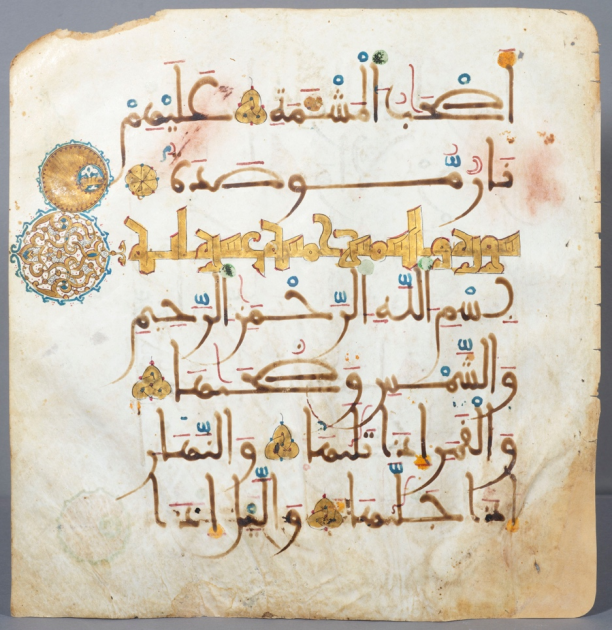 أَصْحَٰبُ الْمَشْـَٔمَةِ عَلَيْهِمْ
نَارٌ مُّوصَدَةٌ
سورة والشمس خمس عشرة اية
بِسْمِ اللَّهِ الرَّحْمَٰنِ الرَّحِيمِ
وَالشَّمْسِ وَضُحَىٰهَا
وَالْقَمَرِ إِذَا تَلَىٰهَا وَالنَّهَارِ
إِذَا جَلَّىٰهَا وَالَّيْلِ إِذَا